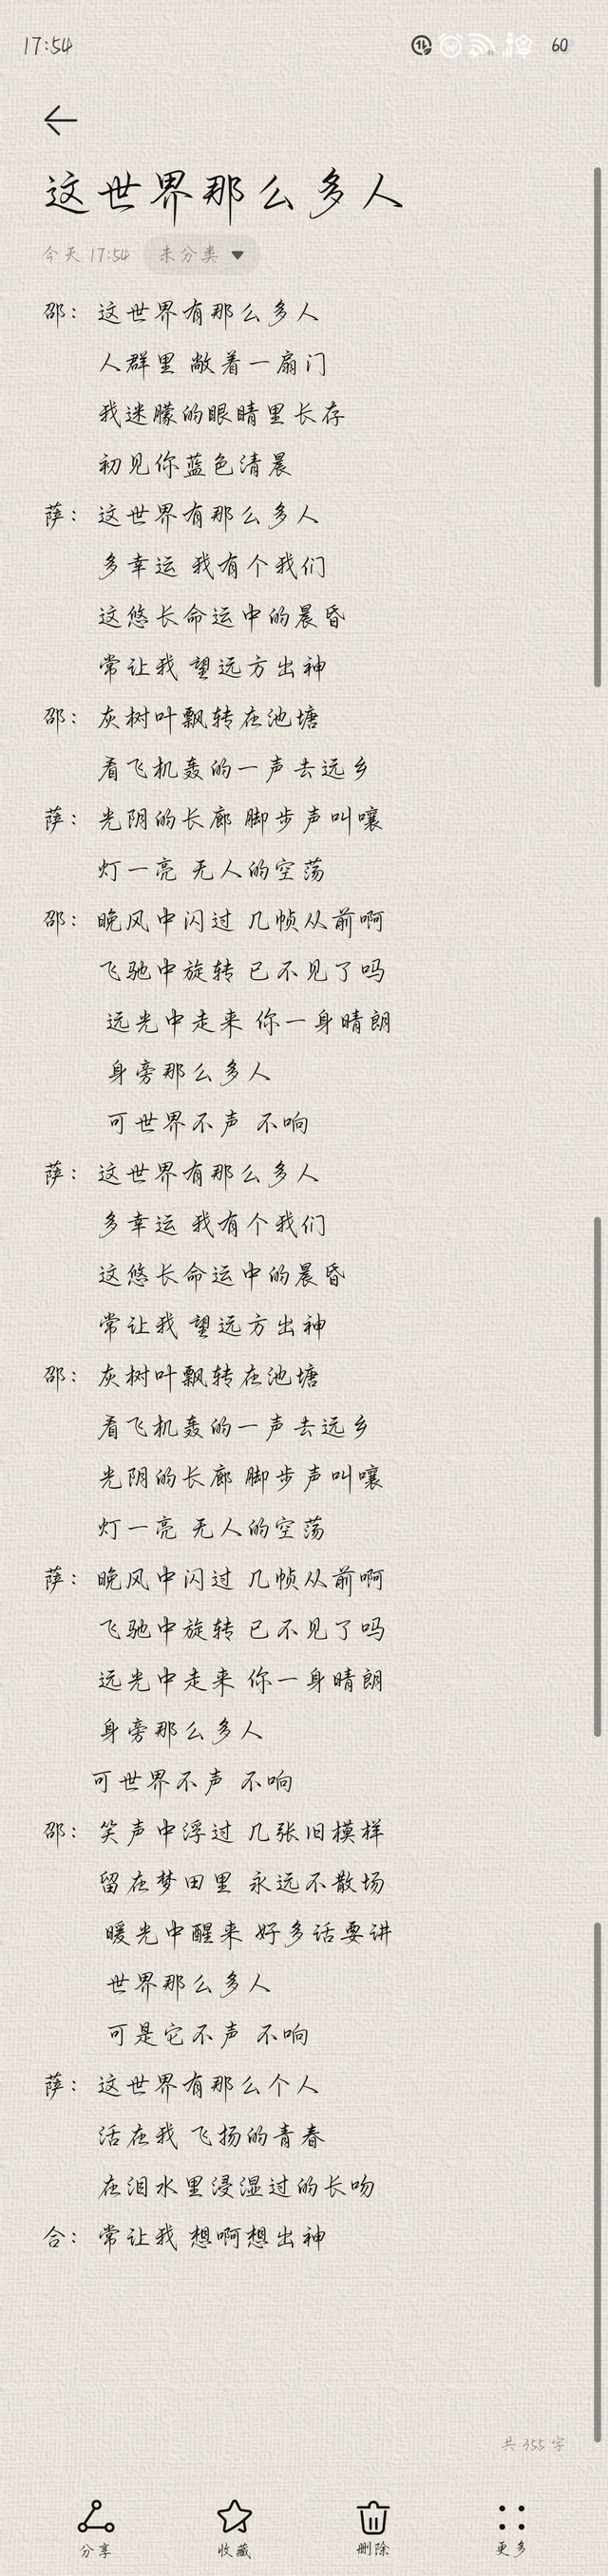 17:54 60
这世界那么多人
今天 17:54 未分类
邵：这世界有那么多人
人群里 敞着一扇门
我迷朦的眼睛里长存
初见你蓝色清晨
萨：这世界有那么多人
多幸运 我有个我们
这悠长命运中的晨昏
常让我 望远方出神
邵：灰树叶飘转在池塘
看飞机轰的一声去远乡
萨：光阴的长廊 脚步声叫嚷
灯一亮 无人的空荡
邵：晚风中闪过 几帧从前啊
飞驰中旋转 已不见了吗
远光中走来 你一身晴朗
身旁那么多人
可世界不声 不响
萨：这世界有那么多人
多幸运 我有个我们
这悠长命运中的晨昏
常让我 望远方出神
邵：灰树叶飘转在池塘
看飞机轰的一声去远乡
光阴的长廊 脚步声叫嚷
灯一亮 无人的空荡
萨：晚风中闪过 几帧从前啊
飞驰中旋转 已不见了吗
远光中走来 你一身晴朗
身旁那么多人
可世界不声 不响
邵：笑声中浮过 几张旧模样
留在梦田里 永远不散场
暖光中醒来 好多话要讲
世界那么多人
可是它不声 不响
萨：这世界有那么个人
活在我 飞扬的青春
在泪水里浸湿过的长吻
合：常让我 想啊想出神
共 355 字
分享 收藏 删除 更多